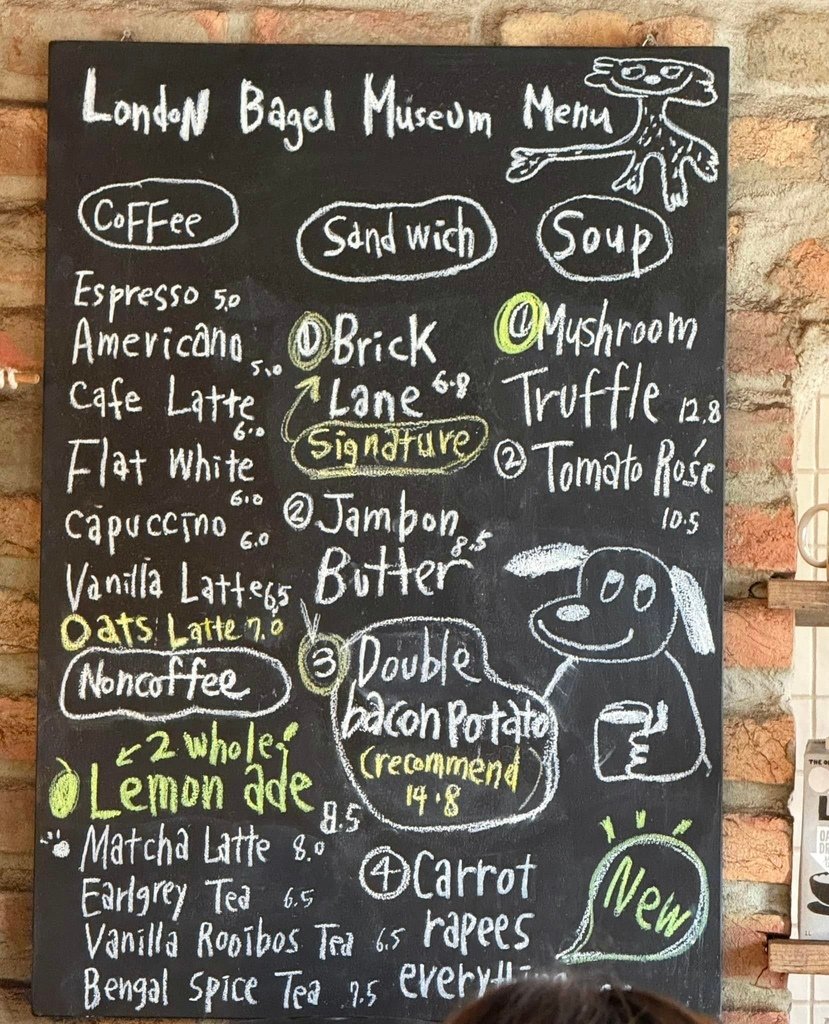 London Bagel Museum Menu
Coffee
Espresso 5.0
Americano 5.0
Cafe Latte 6.0
Flat White 6.0
Capuccino 6.0
Vanilla Latte 6.5
Oats Latte 7.0
Noncoffee
2 whole
Lemon ade 8.5
Matcha Latte 8.0
Earlgrey Tea 6.5
Vanilla Rooibos Tea 6.5
Bengal Spice Tea 7.5
Sandwich
① Brick
Lane 6.8
Signature
② Jambon
Butter 8.5
③ Double
bacon Potato
(recommend
14.8
④ Carrot
rapees
Soup
① Mushroom
Truffle 12.8
② Tomato Rosé
10.5
New